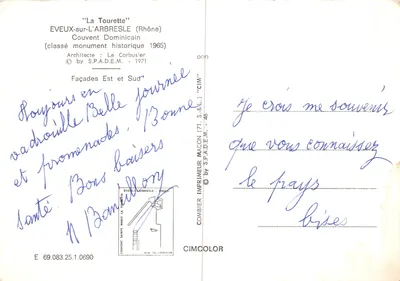 "La Tourette"
EVEUX-sur-L'ARBRESLE (Rhône)
Couvent Dominicain
(classé monument historique 1965)
Architecte : Le Corbusier
© by S.P.A.D.E.M. - 1971
Façades Est et Sud"
Toujours en
vadrouille Belle journée
et promenades. Bonne
Santé. Bons baisers
COMBIER IMPRIMEUR MACON (71 - S.&-L.) "CIM"
© by S.P.A.D.E.M. - 46
Je crois me souvenir
que vous connaissez
le pays
bises
CIMCOLOR
E 69.083.25.1.0690